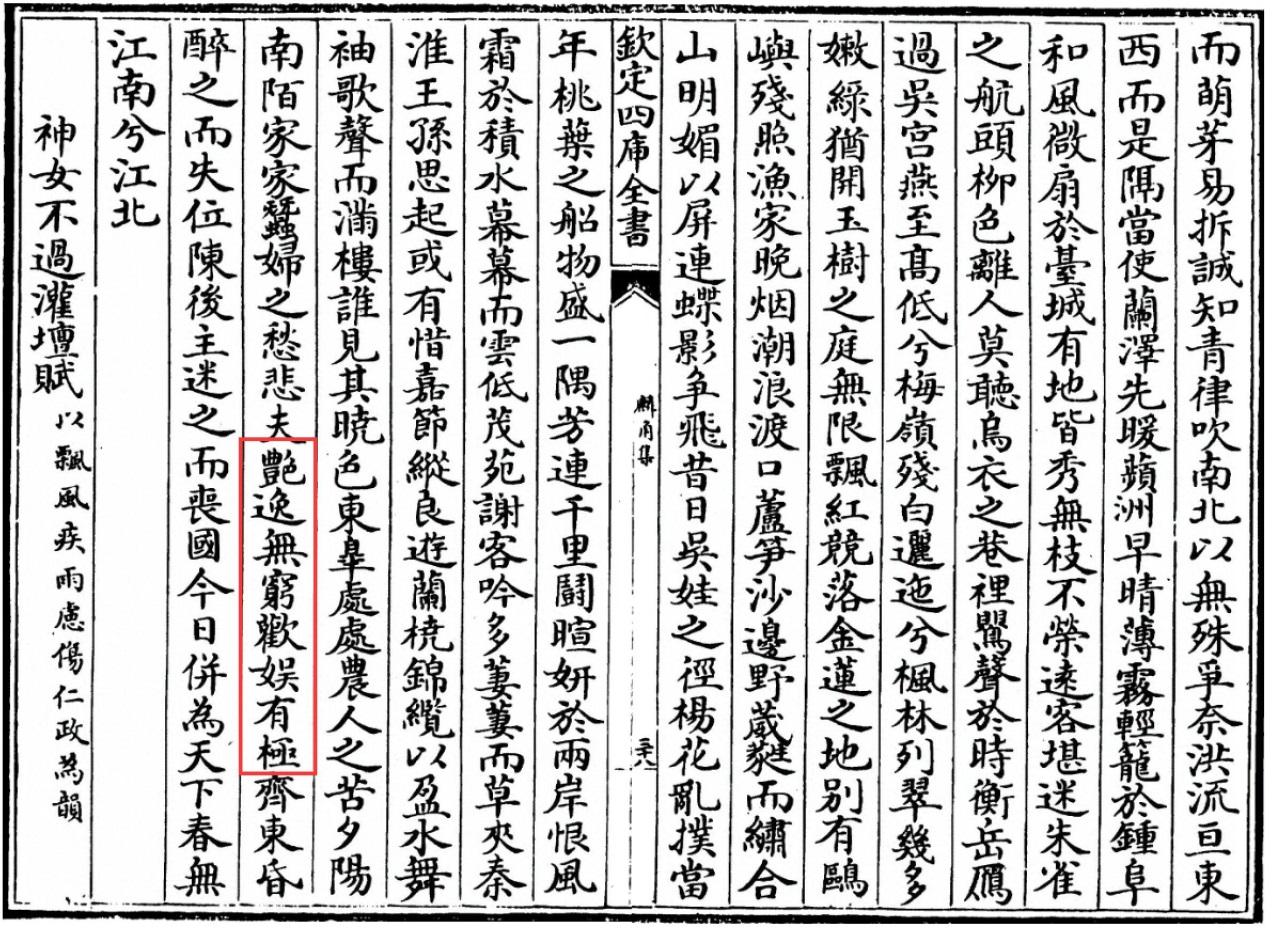 而萌芽易拆誠知青律吹南北以無殊爭奈洪流亘東
西而是隅當使蘭澤先暖蘋洲早晴薄霧輕籠於鍾阜
和風微扇於臺城有地皆秀無枝不榮遠客堪迷朱雀
之航頭柳色離人莫聽烏衣之巷裡鸎聲於時衡岳鴈
過吳宫燕至髙低兮梅嶺殘白邐迤兮楓林列翠幾多
嫩綠猶開玉樹之庭無限飄紅競落金蓮之地别有鷗
嶼殘照漁家晚烟潮浪渡口蘆笋沙邊野葳蕤而繡合
山明媚以屏連蝶影争飛昔日吳娃之徑楊花亂撲當
欽定四庫全書
麟角集
三十八
年桃葉之船物盛一隅芳連千里鬬暄妍於兩岸恨風
霜於積水幕幕而雲低茂苑謝客吟多萋萋而草夾秦
淮王孫思起或有惜嘉節縱良遊蘭橈錦纜以盈水舞
袖歌聲而滿樓誰見其暁色東臯處處農人之苦夕陽
南陌家家蠶婦之愁悲夫艶逸無窮歡娱有極齊東昏
醉之而失位陳後主迷之而喪國今日併為天下春無
江南兮江北
神女不過灌壇賦 以飄風疾雨慮傷仁政為韻